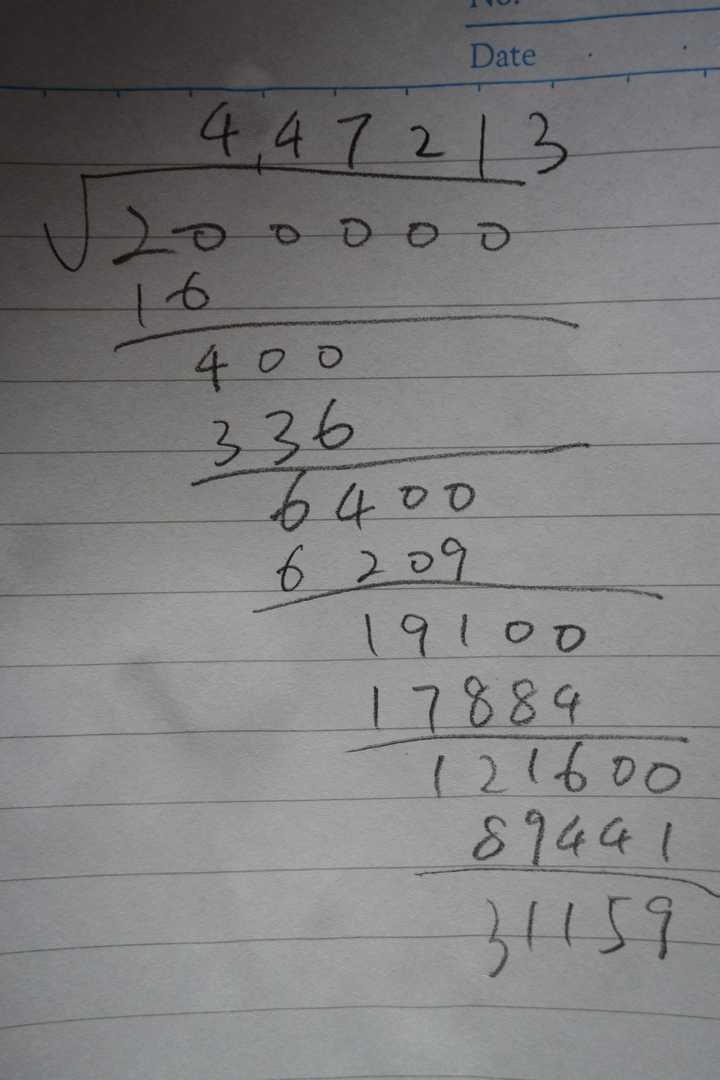 No.
Date
4.47213
√200000
16
400
336
6400
6209
19100
17884
121600
89441
31159